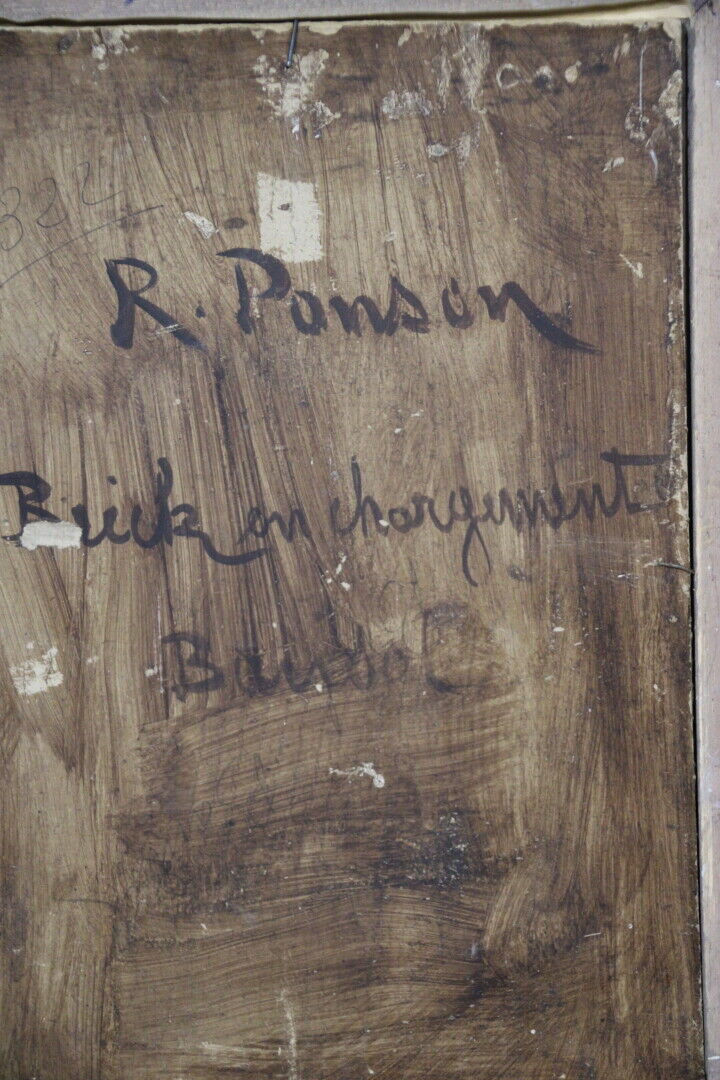 322
R. Ponson
Brick en chargement
Bandol